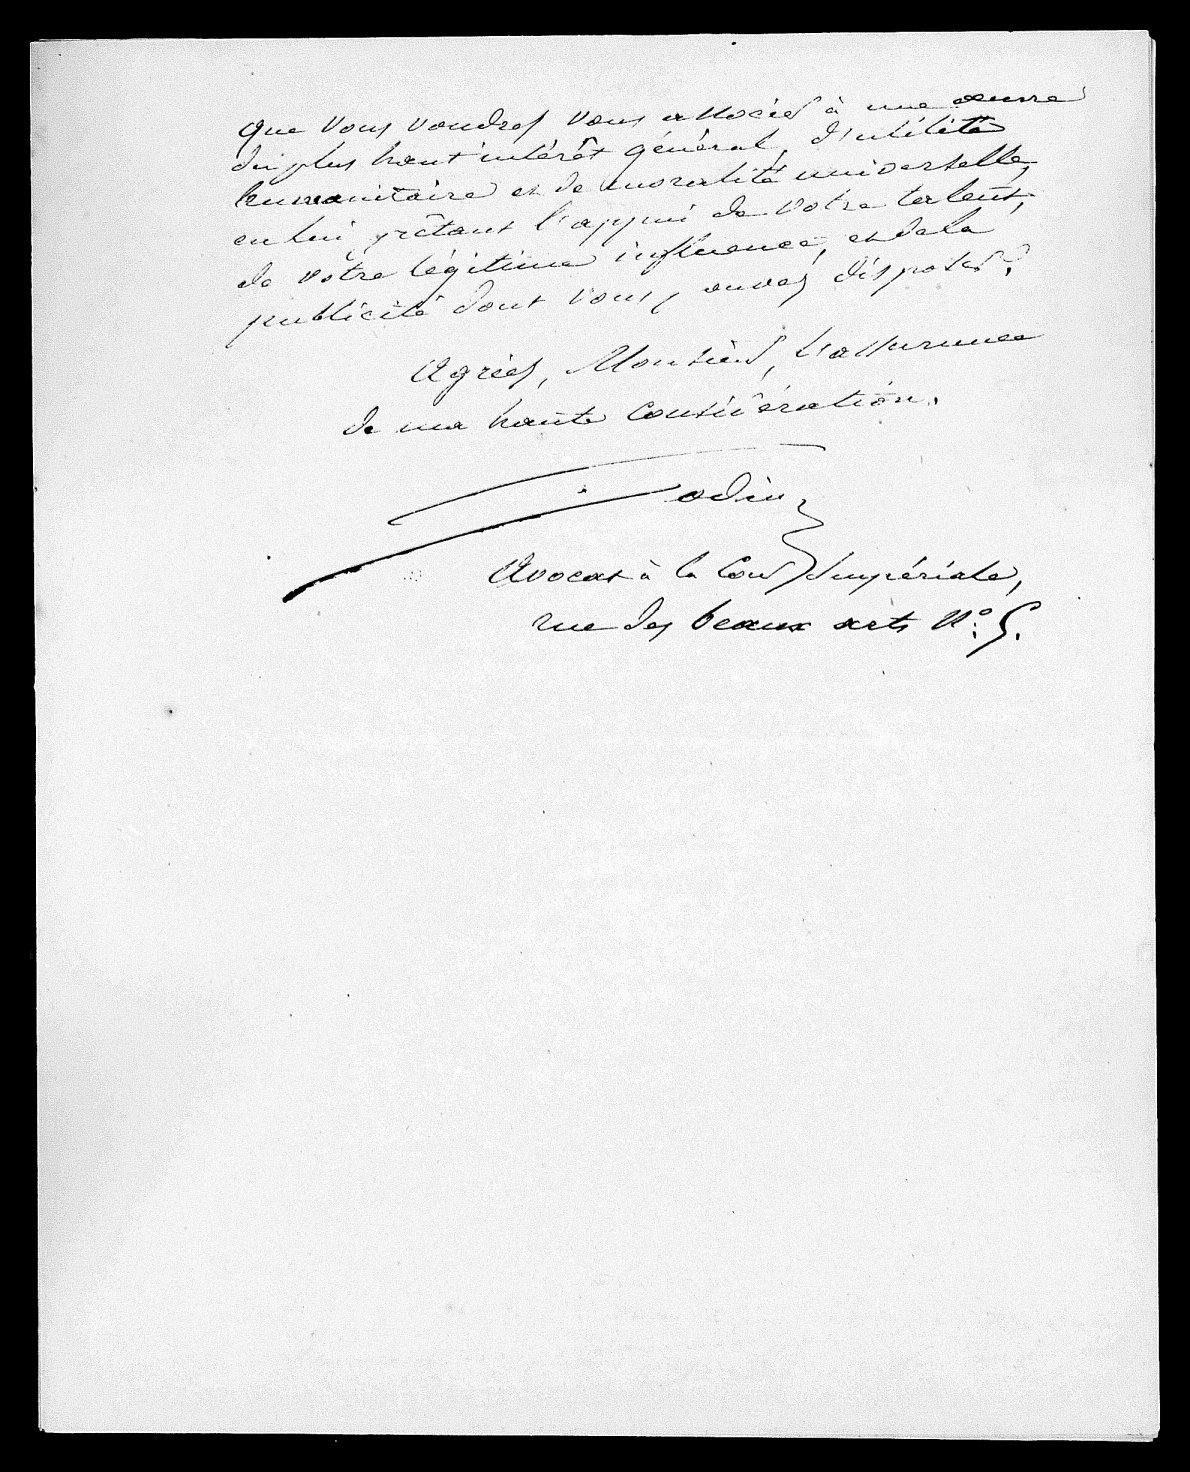 que vous voudrez vous associer à une œuvre
du plus haut intérêt général, d'utilité
humanitaire et de moralité universelle,
en lui prêtant l'appui de votre talent,
de votre légitime influence, et de la
publicité dont vous avez disposer.
Agréez, Monsieur, l'assurance
de ma haute considération.
Godin
Avocat à la Cour Impériale,
rue des beaux arts N.° 5.